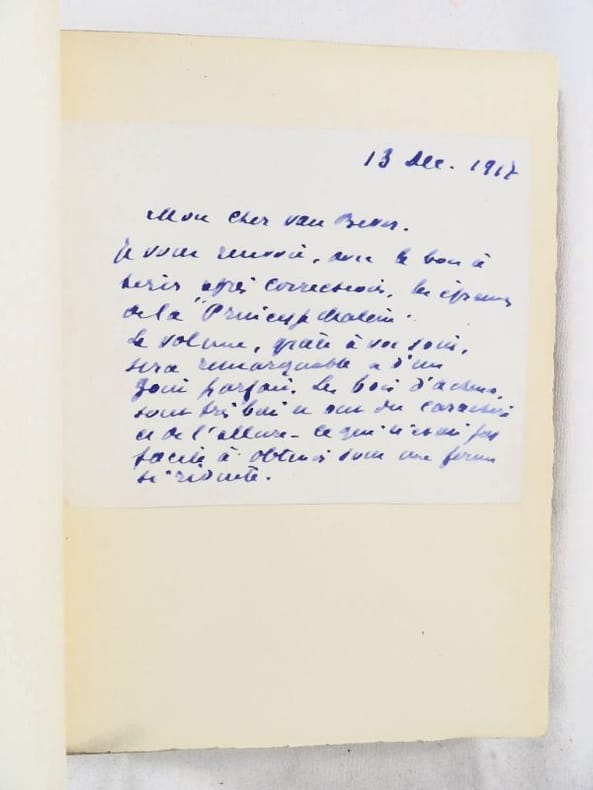 13 Dec. 1917
Mon cher van Bever.
Je vous renvoie, avec le bon à
tirer après correction, les épreuves
de la "Princesse Maleine".
Le volume, grâce à vos soins,
sera remarquable et d'un
goût parfait. Les bois d'
sont très bien et ont du caractère
et de l'allure - ce qui n'était pas
facile à obtenir sous une forme
si réduite.